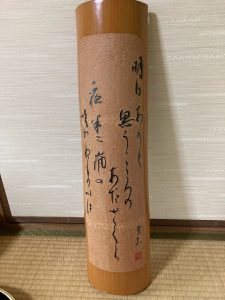 明日ありと
思うこころの
あだざくら
夜半に嵐の
吹かぬものかは